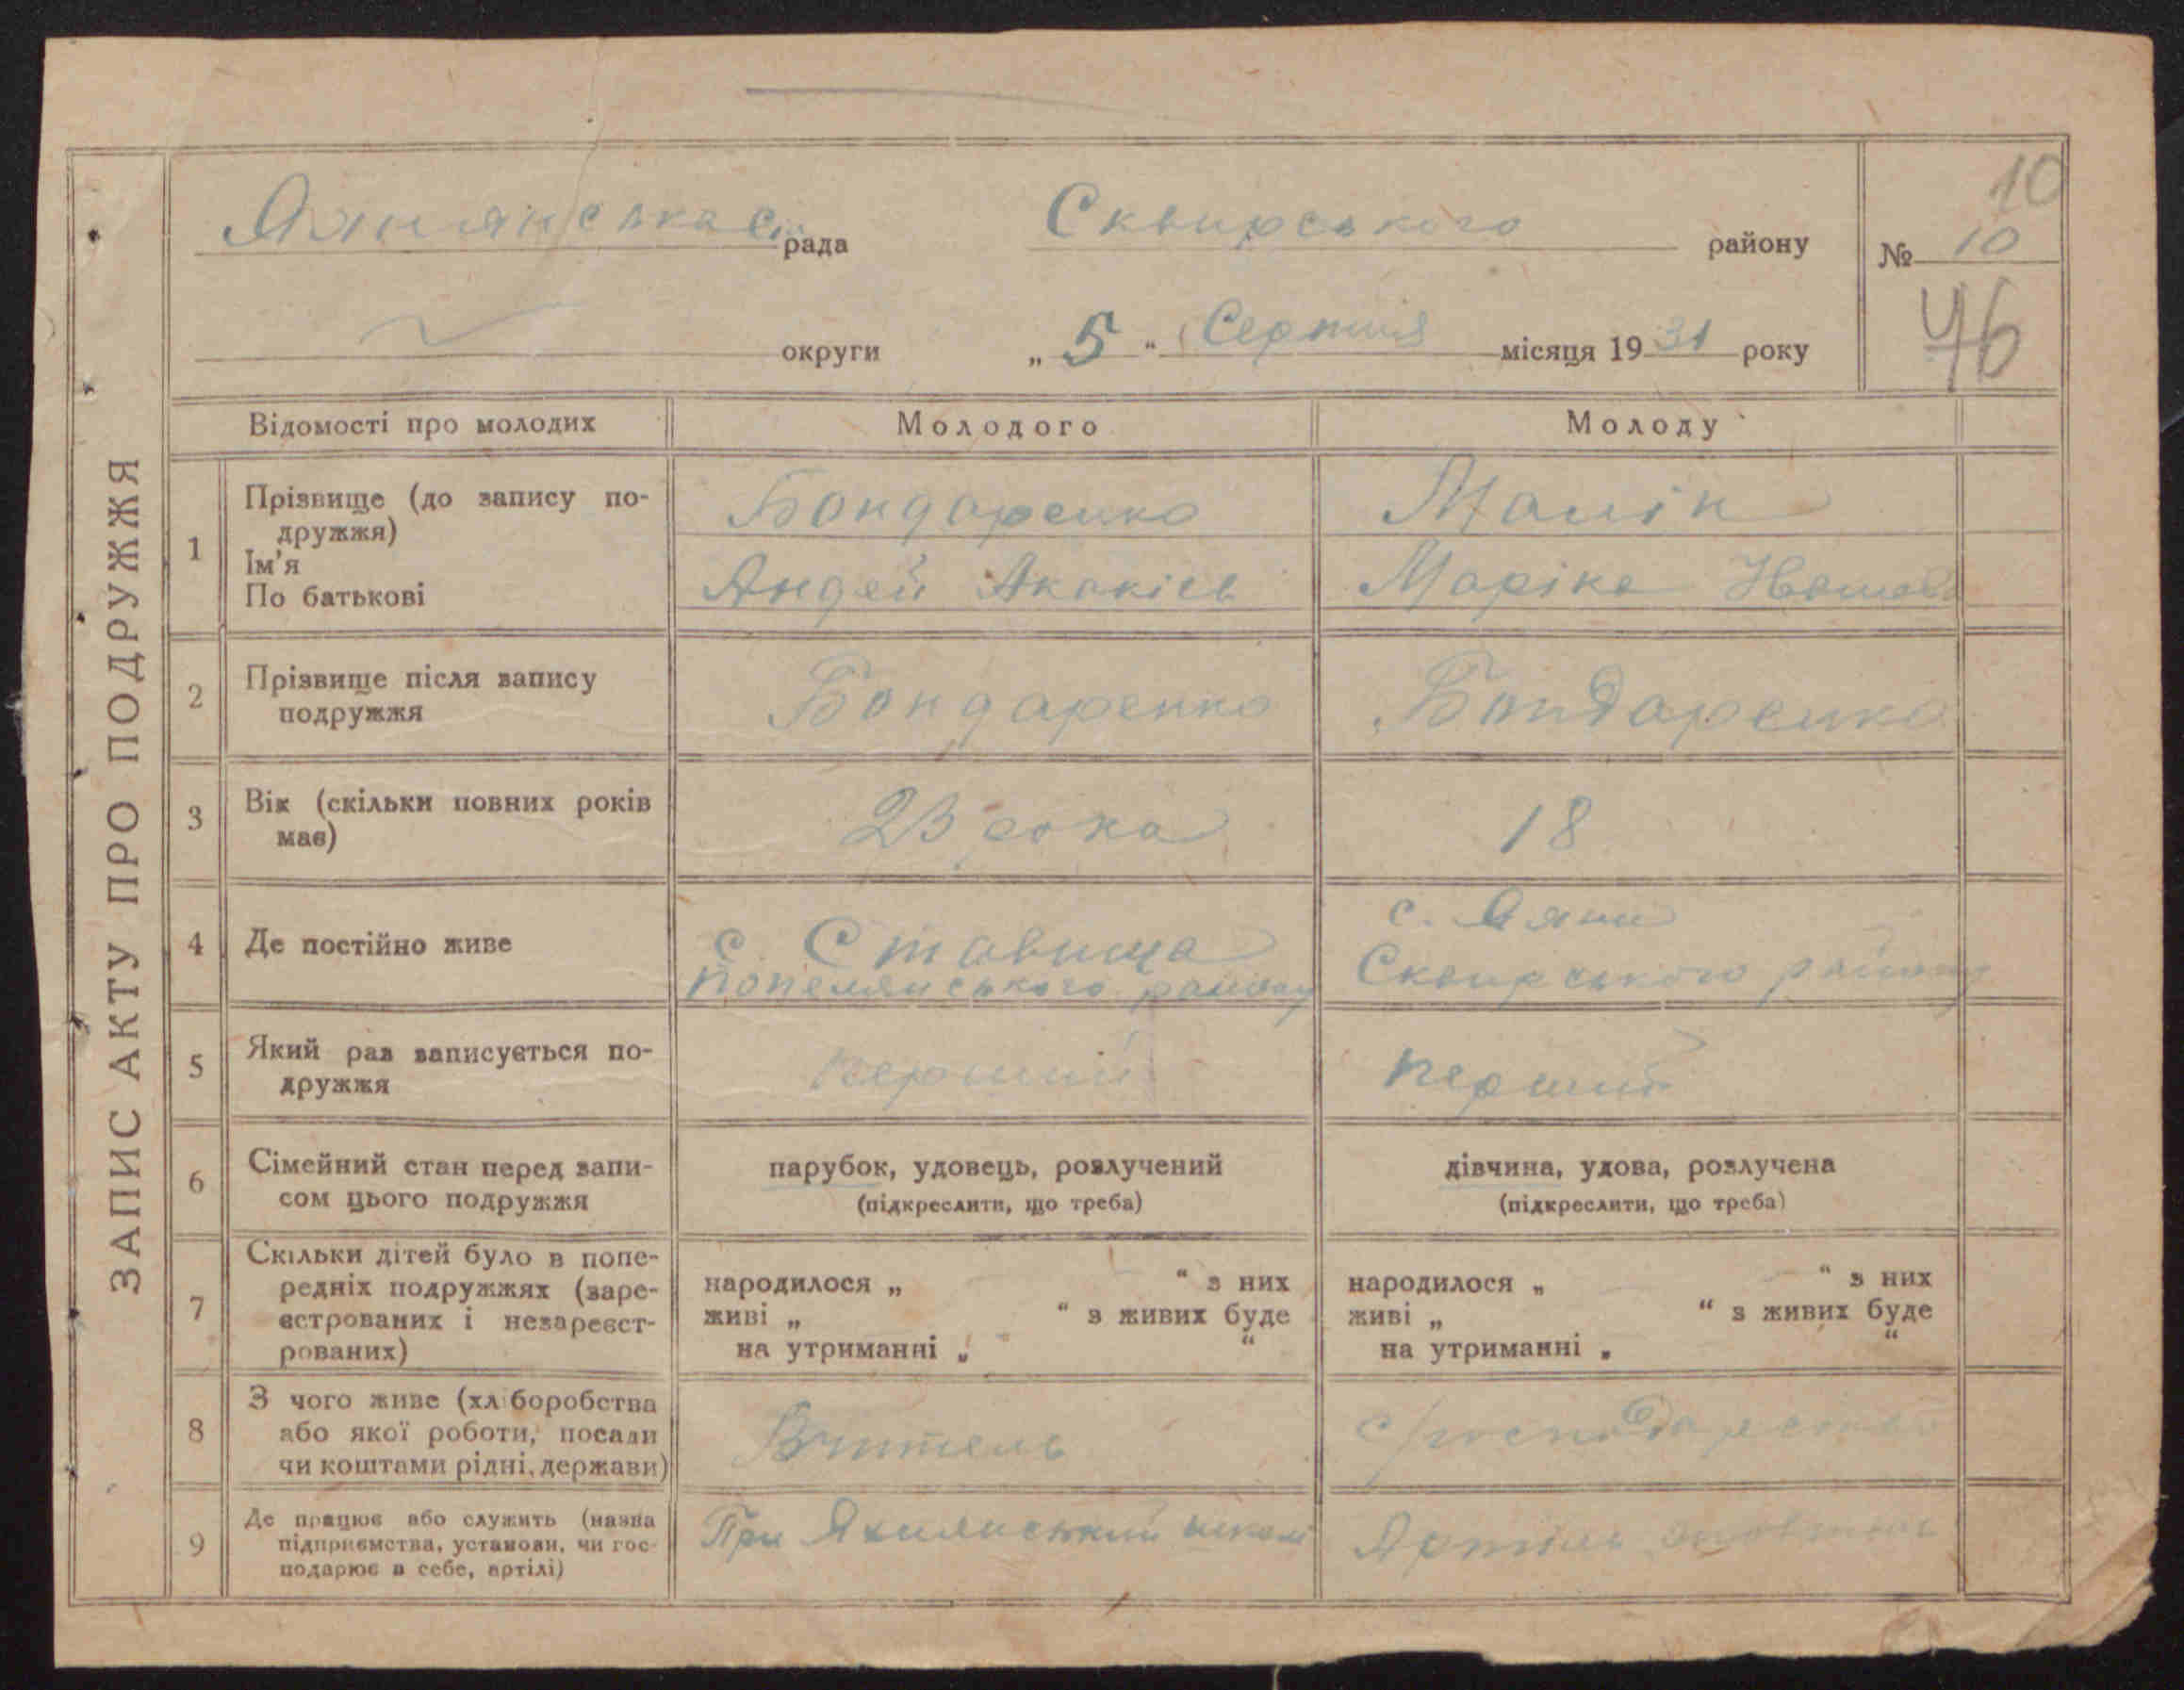 ЗАПИС АКТУ ПРО ПОДРУЖЖЯ
рада Сквирського району № 10
10
округи „ 5 “ Серпня місяця 19 31 року
46
Відомості про молодих Молодого Молоду
1 Прізвище (до запису по-
дружжя)
Ім'я
По батькові
Бондаренко
Андей Акакієв
Маріка
2 Прізвище після запису
подружжя
Бондаренко
Бондаренко
3 Вік (скільки повних років
має)
23 рока
18
4 Де постійно живе
с. Ставища
Попелянського району
с.
Сквирського району
5 Який раз записується по-
дружжя
перший
перший
6 Сімейний стан перед запи-
сом цього подружжя
парубок, удовець, розлучений
(підкреслити, що треба)
дівчина, удова, розлучена
(підкреслити, що треба)
7 Скільки дітей було в попе-
редніх подружжях (заре-
єстрованих і незареєст-
рованих)
народилося „ “ з них
живі „ “ з живих буде
на утриманні „ “
народилося „ “ з них
живі „ “ з живих буде
на утриманні „ “
8 З чого живе (хліборобства
або якої роботи, посади
чи коштами рідні, держави)
Вчитель
9 Де працює або служить (назва
підприємства, установи, чи гос-
подарює в себе, артілі)
При школі
Артіль